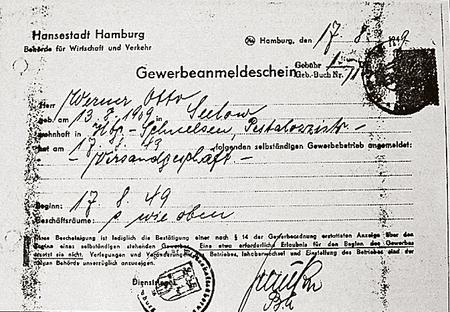 Hansestadt Hamburg
Behörde für Wirtschaft und Verkehr
Hamburg, den 17. 8. 1949.
Gebühr
Geb.-Buch Nr.
Gewerbeanmeldeschein
Herr Werner Otto
geb. am 13. 8. 1909 in Seelow
wohnhaft in Hbg.-Schnelsen, Pestalozzistr.
hat am 17. 8. 49 folgenden selbständigen Gewerbebetrieb angemeldet:
- Versandgeschäft -
Beginn: 17. 8. 49
Geschäftsräume: wie oben
Diese Bescheinigung ist lediglich die Bestätigung einer nach § 14 der Gewerbeordnung erstatteten Anzeige über den
Beginn eines selbständigen stehenden Gewerbes. Eine etwa erforderliche Erlaubnis für den Beginn des Gewerbes
ersetzt sie nicht. Verlegungen und Veränderungen des Betriebes, Inhaberwechsel und Einstellung des Betriebes sind der
obigen Behörde unverzüglich anzuzeigen.
Dienstsiegel